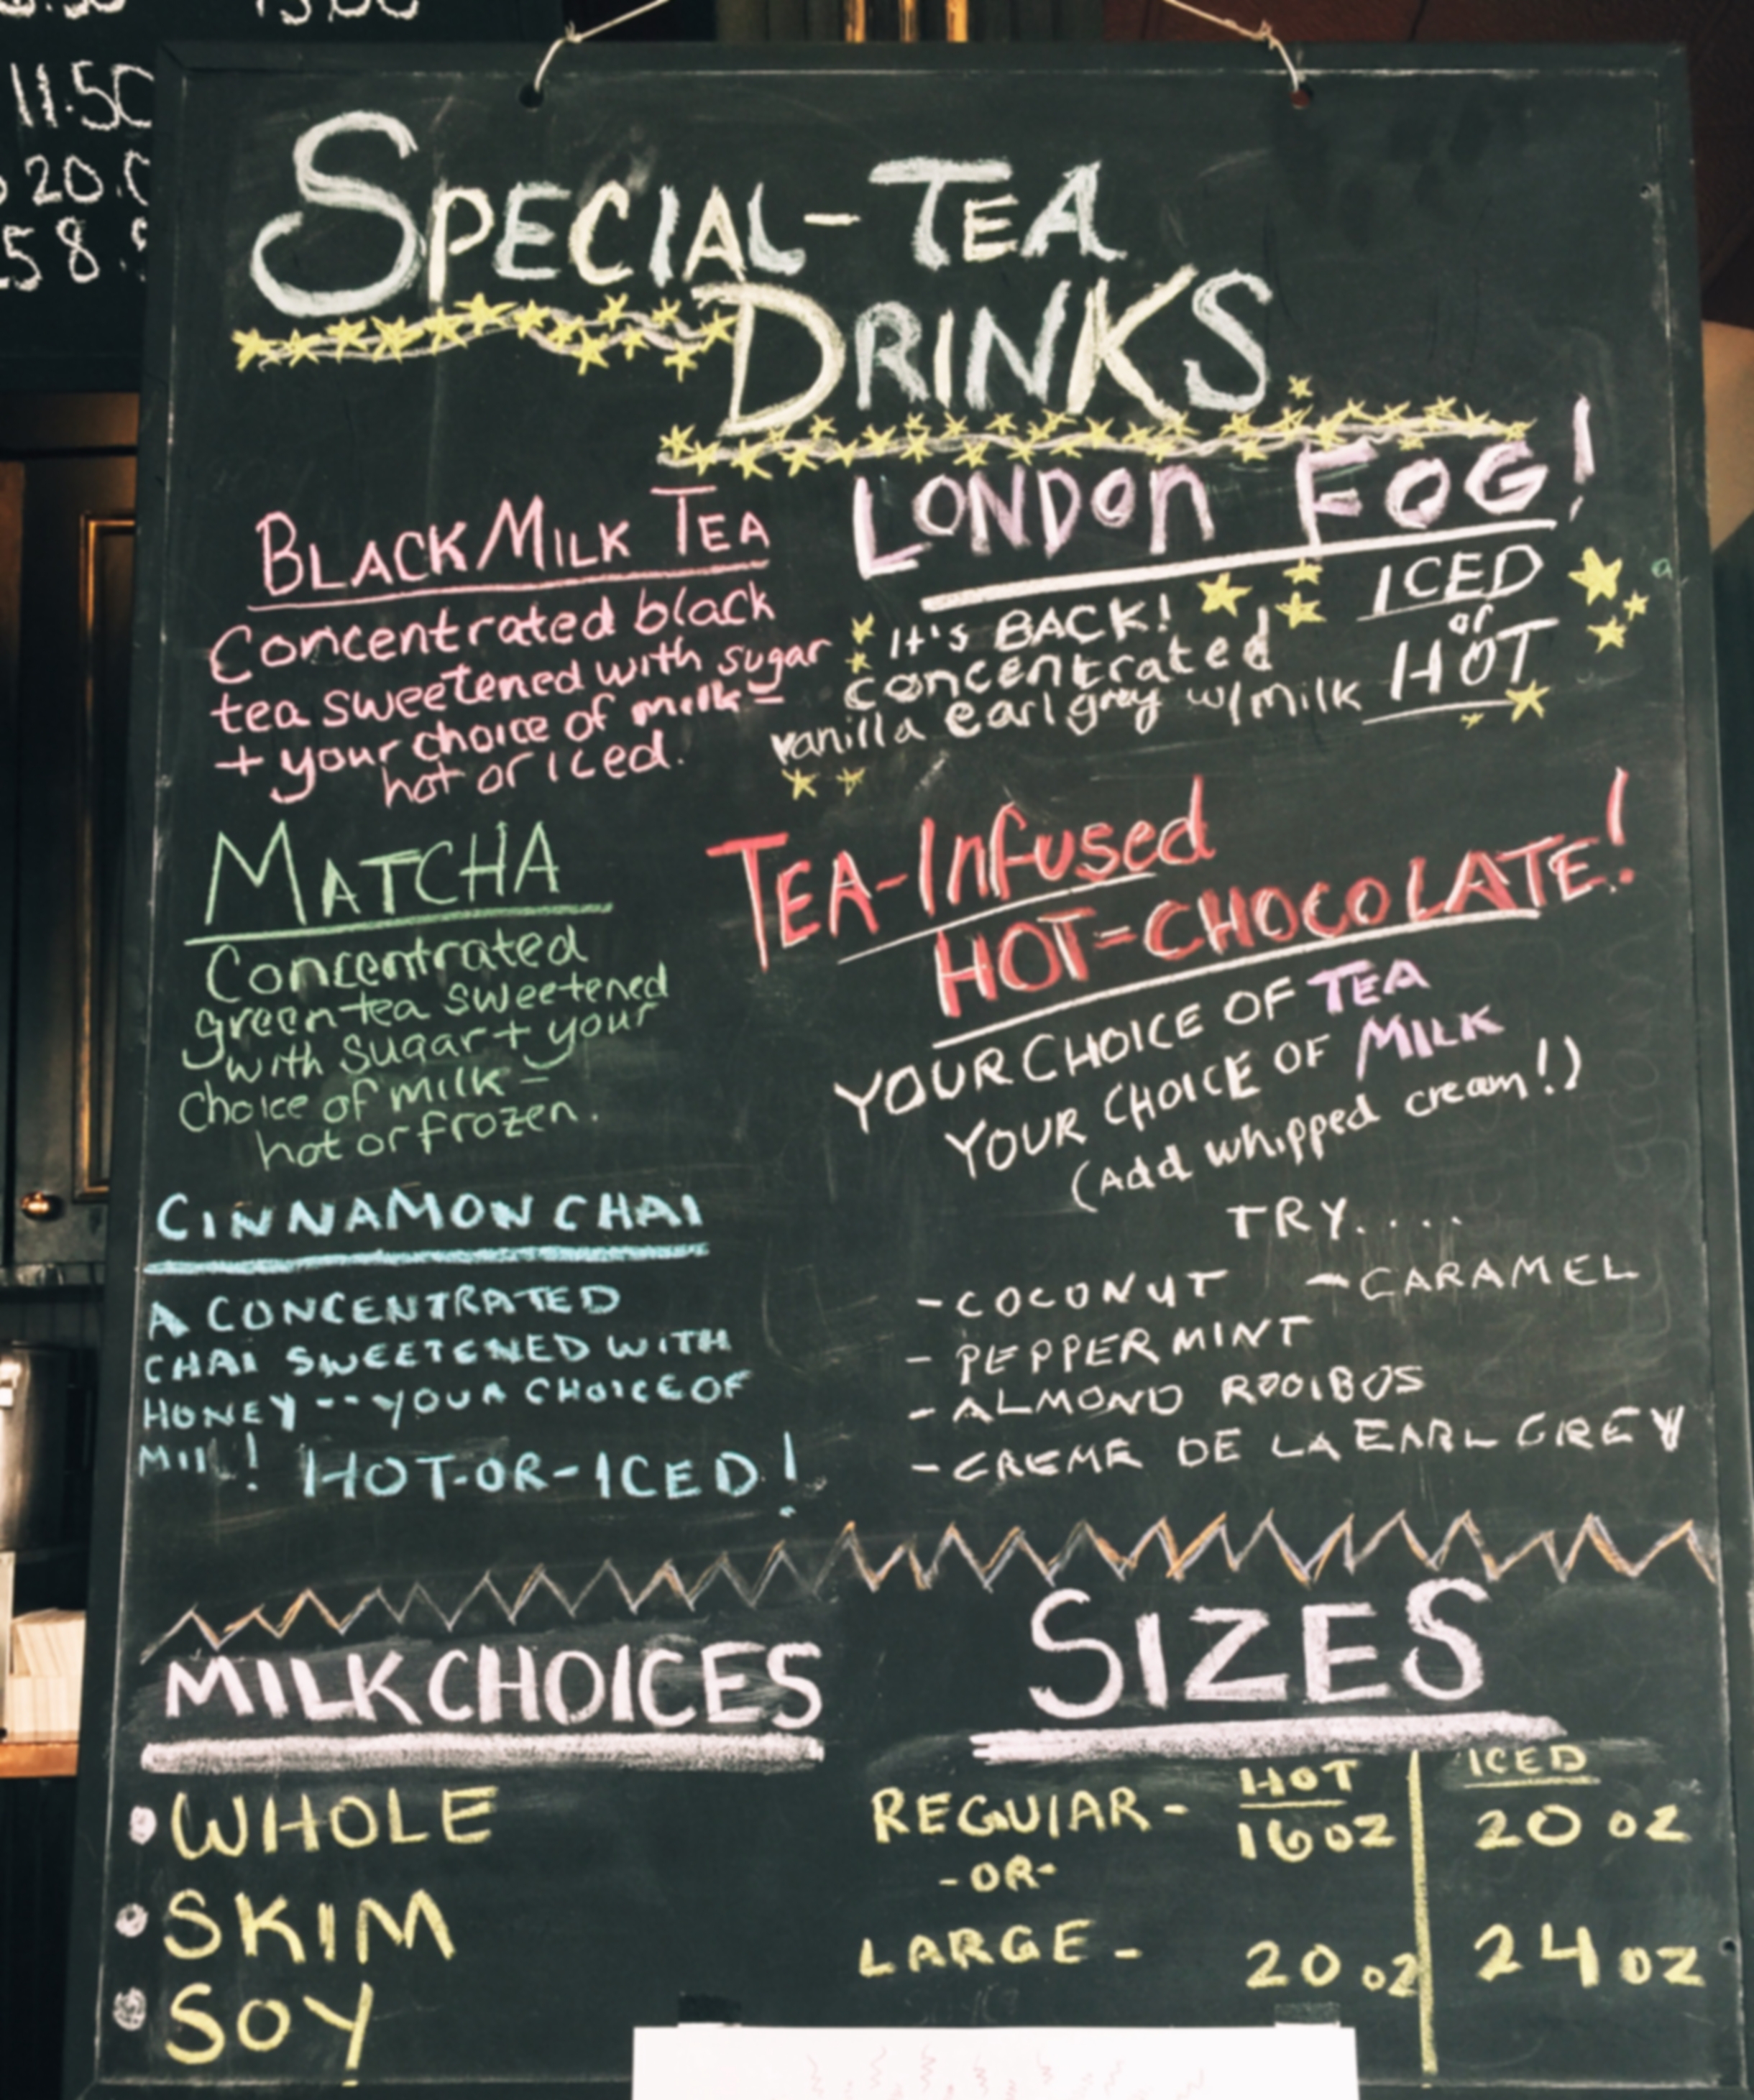 11.50
20.0
58.
SPECIAL-TEA
DRINKS
BLACK MILK TEA
Concentrated black
tea sweetened with sugar
+ your choice of milk -
hot or iced.
LONDON FOG!
It's BACK!
concentrated
vanilla earl grey w/milk
ICED
or
HOT
MATCHA
Concentrated
green tea sweetened
with sugar + your
choice of milk -
hot or frozen.
TEA-Infused
HOT-CHOCOLATE!
YOUR CHOICE OF TEA
YOUR CHOICE OF MILK
(Add whipped cream!)
TRY....
- COCONUT - CARAMEL
- PEPPERMINT
- ALMOND ROOIBOS
- CREME DE LA EARL GREY
CINNAMON CHAI
A CONCENTRATED
CHAI SWEETENED WITH
HONEY -- YOUR CHOICE OF
HOT-OR-ICED!
MILK CHOICES
WHOLE
SKIM
SOY
SIZES
HOT ICED
REGULAR - 16 oz 20 oz
-OR-
LARGE - 20 oz 24 oz